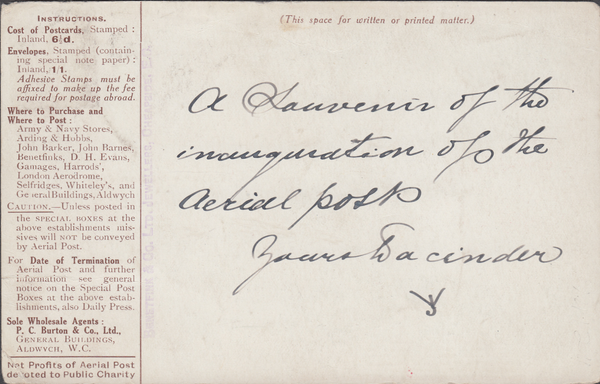 INSTRUCTIONS.
Cost of Postcards, Stamped :
Inland, 6½d.
Envelopes, Stamped (contain-
ing special note paper) :
Inland, 1/1.
Adhesive Stamps must be
affixed to make up the fee
required for postage abroad.
Where to Purchase and
Where to Post :
Army & Navy Stores,
Arding & Hobbs,
John Barker, John Barnes,
Benetfinks, D. H. Evans,
Gamages, Harrods',
London Aerodrome,
Selfridges, Whiteley's, and
General Buildings, Aldwych
CAUTION.—Unless posted in
the SPECIAL BOXES at the
above establishments mis-
sives will NOT be conveyed
by Aerial Post.
For Date of Termination of
Aerial Post and further
information see general
notice on the Special Post
Boxes at the above estab-
lishments, also Daily Press.
Sole Wholesale Agents :
P. C. Burton & Co., Ltd.,
GENERAL BUILDINGS,
ALDWYCH, W.C.
Net Profits of Aerial Post
devoted to Public Charity
(This space for written or printed matter.)
A Souvenir of the
inauguration of the
Aerial post
Yours